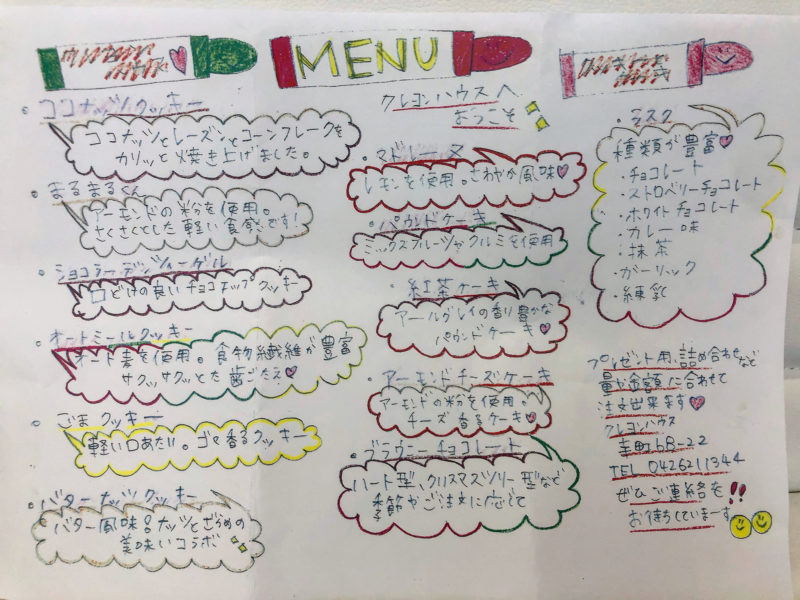 MENU
クレヨンハウスへ
ようこそ
・ココナッツクッキー
ココナッツとレーズンとコーンフレークを
カリッと焼き上げました。
・まるまるくん
アーモンドの粉を使用。
さくさくとした軽い食感です!
・ショコラーデンツィーゲル
口どけの良いチョコチップクッキー
・オートミールクッキー
オート麦を使用。食物繊維が豊富
サクッサクッとた歯ごたえ
・ごまクッキー
軽い口あたり。ゴマ香るクッキー
・バターナッツクッキー
バター風味のナッツとざらめの
美味いコラボ
・マドレーヌ
レモンを使用。さわやか風味
・パウンドケーキ
ミックスフルーツやクルミを使用
・紅茶ケーキ
アールグレイの香り豊かな
パウンドケーキ
・アーモンドチーズケーキ
アーモンドの粉を使用・
チーズ香るケーキ
・ブラウニーチョコレート
ハート型、クリスマスツリー型など
季節やご注文に応じて
・ラスク
種類が豊富
・チョコレート
・ストロベリーチョコレート
・ホワイトチョコレート
・カレー味
・抹茶
・ガーリック
・練乳
プレゼント用、詰め合わせなど
量や金額に合わせて
注文出来ます
クレヨンハウス
幸町6B-22
TEL 0426211344
ぜひご連絡を!!
お待ちしていまーす